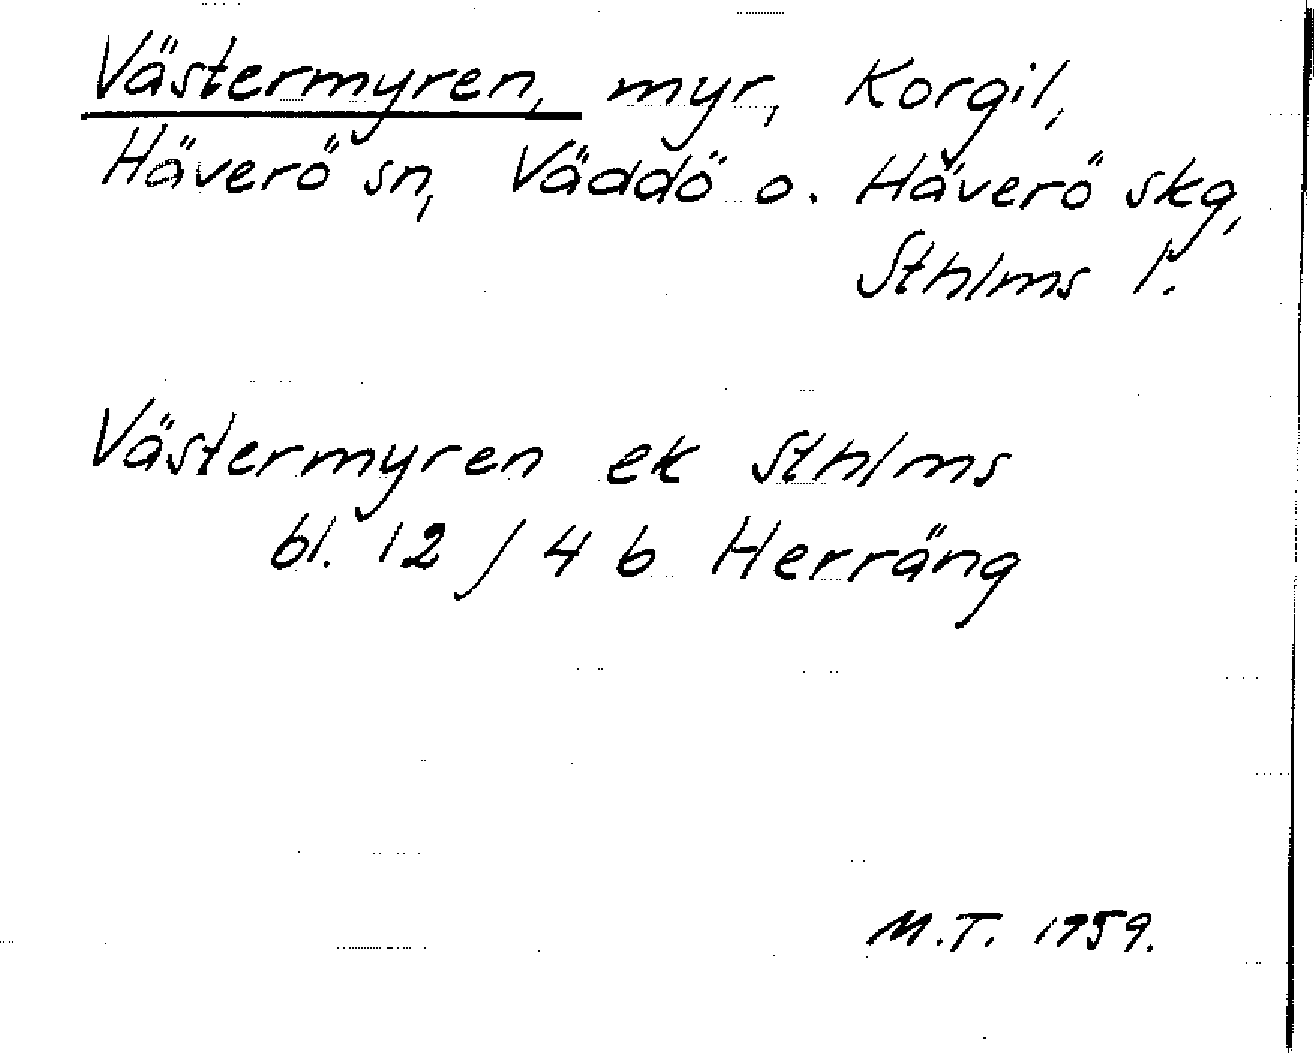 Västermyren, myr, Korgil,
Häverö sn, Väddö o. Häverö skg,
Sthlms l.
Västermyren ek Sthlms
bl. 12 / 4 b Herräng
M.T. 1959.